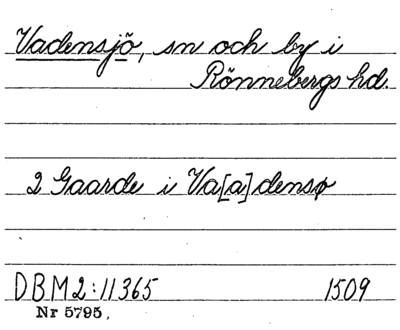 Vadensjö, sn och by i
Rönnebergs hd.
2 Gaarde i Va[a]densø
DBM2:11365 1509
Nr 5795,